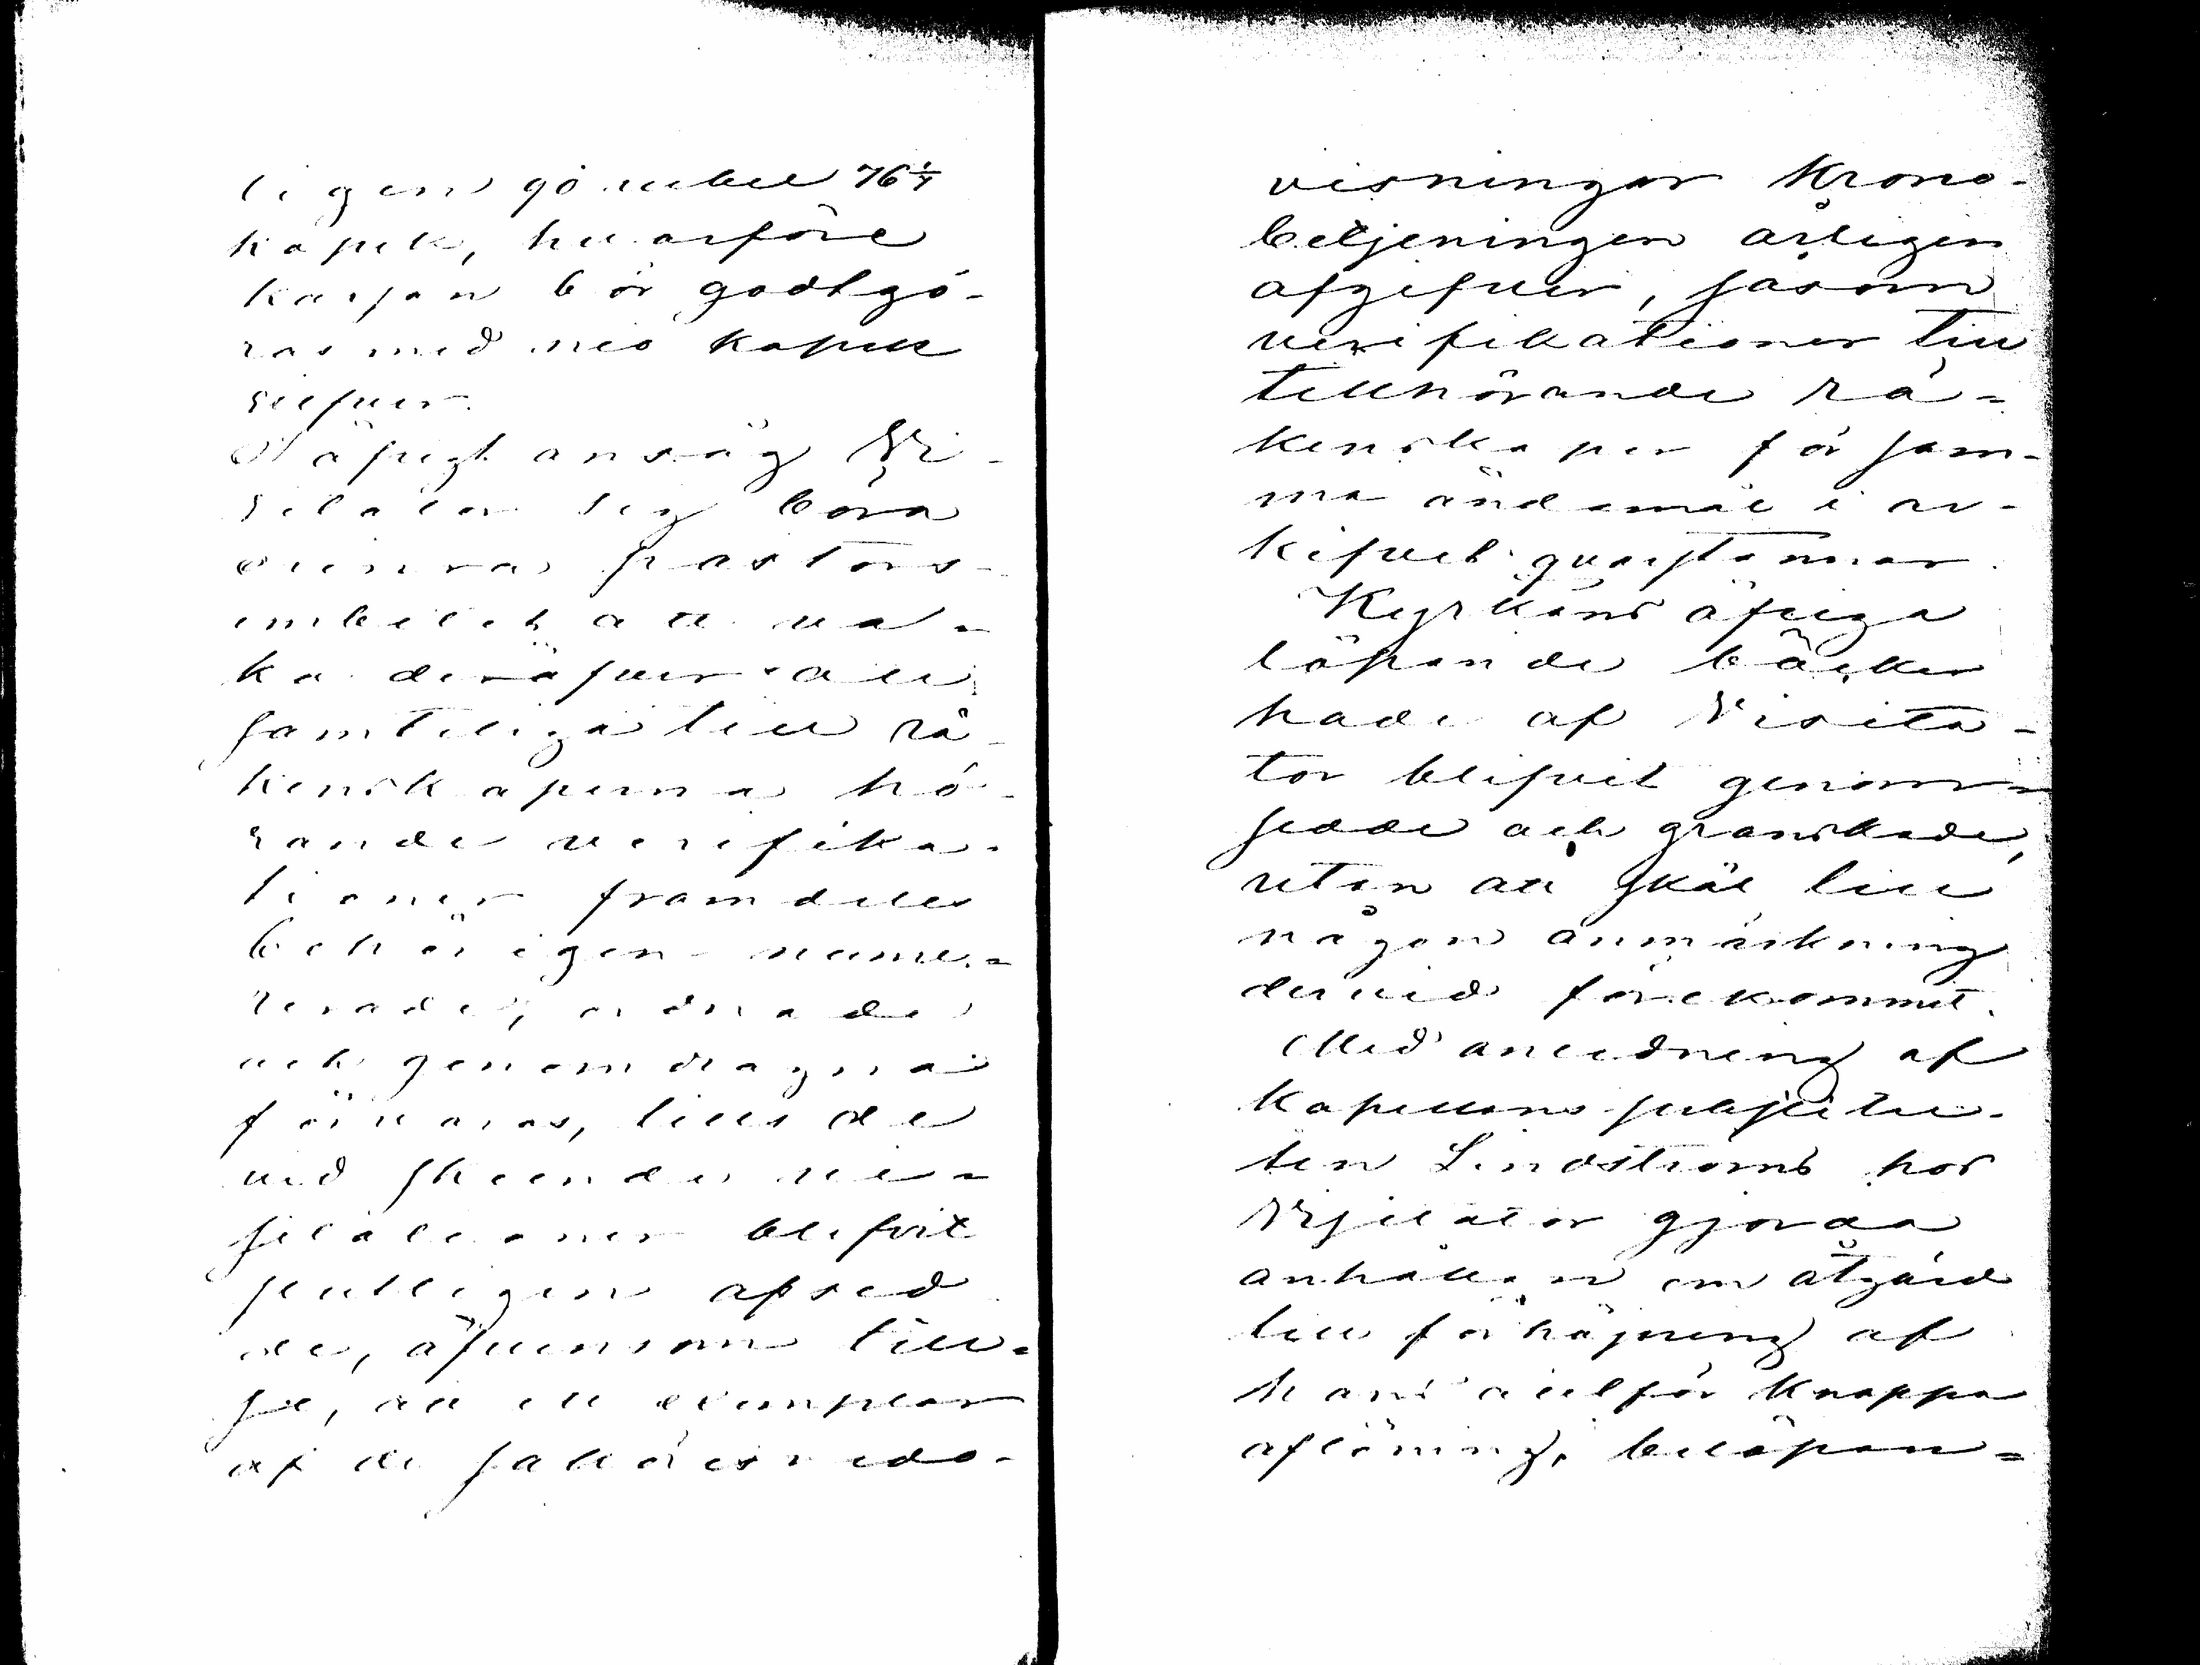 ligen 90 rubel 76 1/4
kopek, hvarföre
kassan bör godtgö-
ras med nio kopek
silfver.
I öfrigt ansåg Vi-
sitator sig böra
erinra pastors-
embetet att va-
ka deröfver att
samtliga till rä-
kenskaperna hö-
rande verifika-
tioner framdeles
behörigen nume-
rerade, ordnade
och genomdragna
förvaras, tills de
vid skeende vi-
sitationer blifvit
slutligen afsed
de, äfvensom till-
se, att ett exemplar
af de saköresredo-
visningar Krono-
betjeningen årligen
afgifver, såsom
verifikationer till
tillhörande rä-
kenskaper för sam-
ma ändamål i ar-
kifvet qvarstannar.
Kyrkans öfriga
löpande böcker
hade af Visita-
tor blifvit genom-
sedde och granskade,
utan att skäl till
någon anmärkning
dervid förekommit.
Med anledning af
Kapellans substitu-
ten Lindströms hos
Visitator gjorda
anhållan om åtgärd
till förhöjning af
hans alltför knappa
aflöning, belöpan-